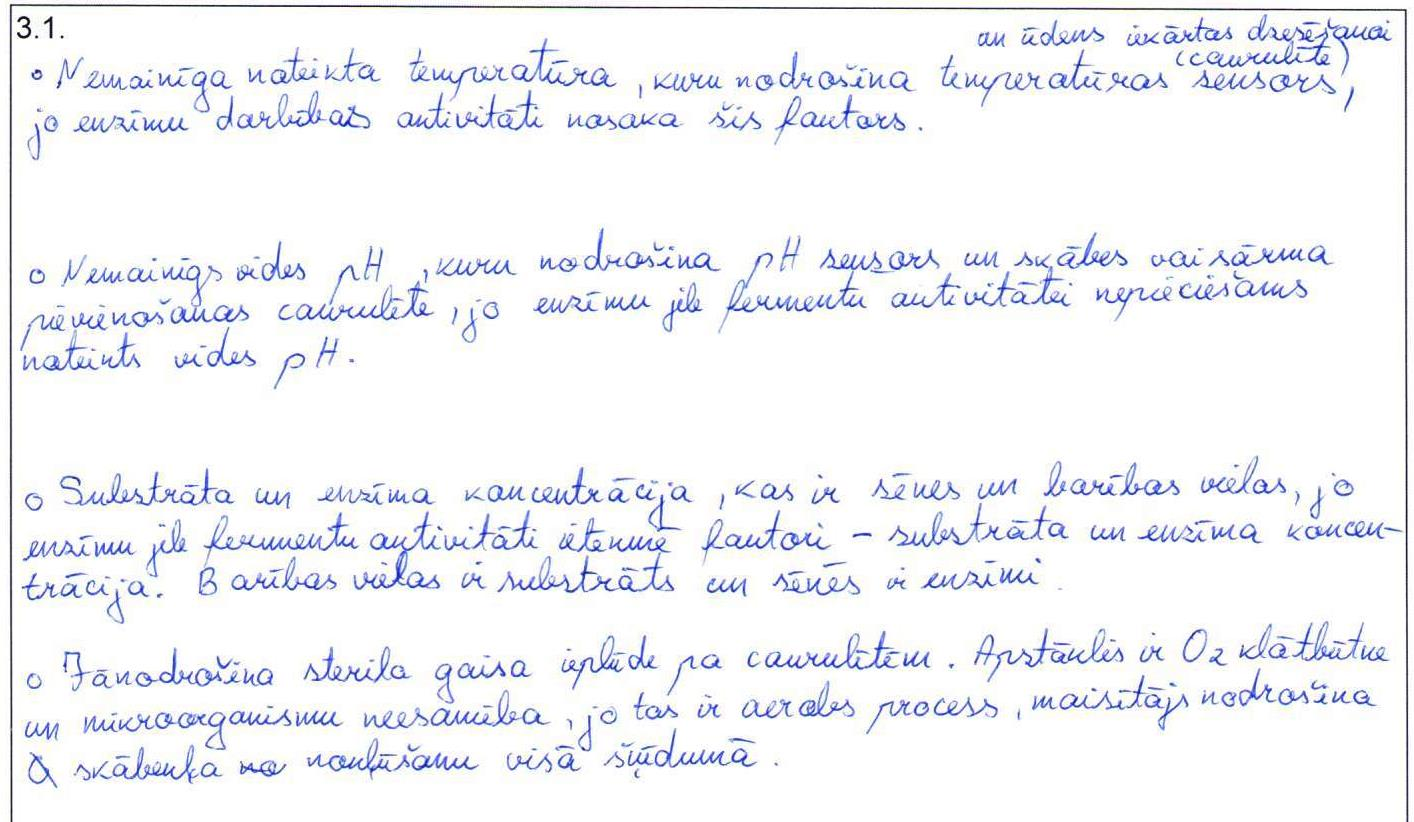 3.1.
un ūdens iekārtas dzesēšanai
(caurulīte)
• Nemainīga noteikta temperatūra, kuru nodrošina temperatūras sensors,
jo enzīmu darbības aktivitāti nosaka šis faktors.
• Nemainīgs vides pH, kuru nodrošina pH sensors un skābes vai sārma
pievienošanas caurulīte, jo enzīmu jeb fermentu aktivitātei nepieciešams
noteikts vides pH.
• Substrāta un enzīma koncentrācija, kas ir sēnes un barības vielas, jo
enzīmu jeb fermentu aktivitāti ietekmē faktori – substrāta un enzīma koncen-
trācija. Barības vielas ir substrāts un sēnēs ir enzīmi.
• Jānodrošina sterila gaisa ieplūde pa caurulītēm. Apstāklis ir O2 klātbūtne
un mikroorganismu neesamība, jo tas ir aerobs process, maisītājs nodrošina
skābekļa nokļūšanu visā šķīdumā.